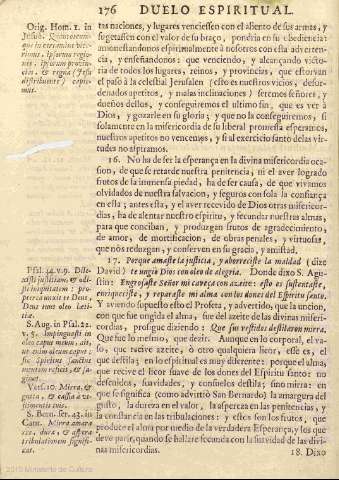 176 DUELO ESPIRITUAL.
Orig. Hom. 1. in
tas naciones, y lugares venciessen con el aliento de sus armas, y
sugetassen con el valor de su braço, pondria en su obediencia:
amonestandonos espiritualmente à nosotros con esta adverten-
cia, y enseñandonos: que venciendo, y alcançando victo-
ria de todos lugares, reinos, y provincias, que estorvan
el paso à la celestial Jerusalen (esto es nuestros vicios, desor-
denados apetitos, y malas inclinaciones) seremos señores, y
dueños dellos, y conseguiremos el ultimo fin, que es ver à
Dios, y gozarle en su gloria; y que no la conseguiremos, si
solamente en la misericordia de su liberal promesa esperamos,
nuestros apetitos no vencemos, y si al exercicio santo de las vir-
tudes no aspiramos.
16. No ha de ser la esperança en la divina misericordia oca-
sion, de que se retarde nuestra penitencia, ni el aver logrado
frutos de la inmensa piedad, ha de ser causa, de que vivamos
olvidados de nuestra salvacion, y seguros con sola la confiança
en ella; antes esta, y el aver recevido de Dios otras misericor-
dias, ha de alentar nuestro espiritu, y fecundar nuestras almas,
para que conciban, y produzgan frutos de agradecimiento,
de amor, de mortificacion, de obras penales, y virtuosas,
que nos reduzgan, y conserven en su gracia, y amistad.
17. Porque amaste la justicia, y aborreciste la maldad (dize
David) te ungiò Dios con oleo de alegria. Donde dixo S. Agu-
stin: Engrosaste Señor mi caveça con azeite: esto es sustentaste,
enriqueciste, y reparaste mi alma con los dones del Espiritu santo.
Y aviendo supuesto esto el Profeta, y advertido, que la uncion,
con que fue ungida el alma, fue del azeite de las divinas miseri-
cordias, prosigue diziendo: Que sus vestidos destilaron mirra.
Que fue lo mesmo, que dezir. Aunque en lo corporal, el va-
so, que recive azeite, ò otro qualquiera licor, esse es, el
que destila; en lo espiritual es muy diferente: porque el alma,
que recive el licor suave de los dones del Espiritu santo: no
denidos, suavidades, y consuelos destila; sino mirra: en
que se significa (como advirtiò San Bernardo) la amargura del
gusto, la dureza en el valor, la aspereza en las penitencias, y
la constancia en las tribulaciones: y estos son los frutos, que
produce el alma por medio de la verdadera Esperança, y los que
deve parir, quando se hallare fecunda con la suavidad de las divi-
nas misericordias. 18. Dixo
Psal. 44. v. 9. Dile-
xisti justitiam, & odi-
sti iniquitatem: pro-
pterea unxit te Deus,
Deus tuus oleo læti-
tiæ.
S. Aug. in Psal. 22.
v. 5. Impinguasti in
oleo caput meum, ait,
Vers. 10. Mirra, &
gutta, & casia à ve-
stimentis tuis.
S. Bern. ser. 43. in
Cant. Mirra amara
res, dura, & aspera
tribulationum signifi-
cat.
2010 Ministerio de Cultura